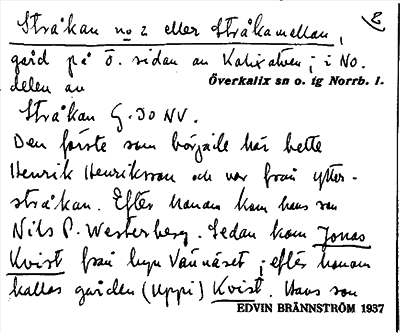 Stråkan no 2 eller Stråkamellan, 2
gård på ö. sidan av Kalixälven; i NO.
delen av Överkalix sn o. tg Norrb. l.
Stråkan G. 30 NV.
Den förste som började här hette
Henrik Henriksson och var från Ytter-
stråkan. Efter honom kom hans son
Nils P. Westerberg. Sedan kom Jonas
Kvist från byn Vännäset; efter honom
kallas gården (Uppi) Kvist. Hans son
EDVIN BRÄNNSTRÖM 1937